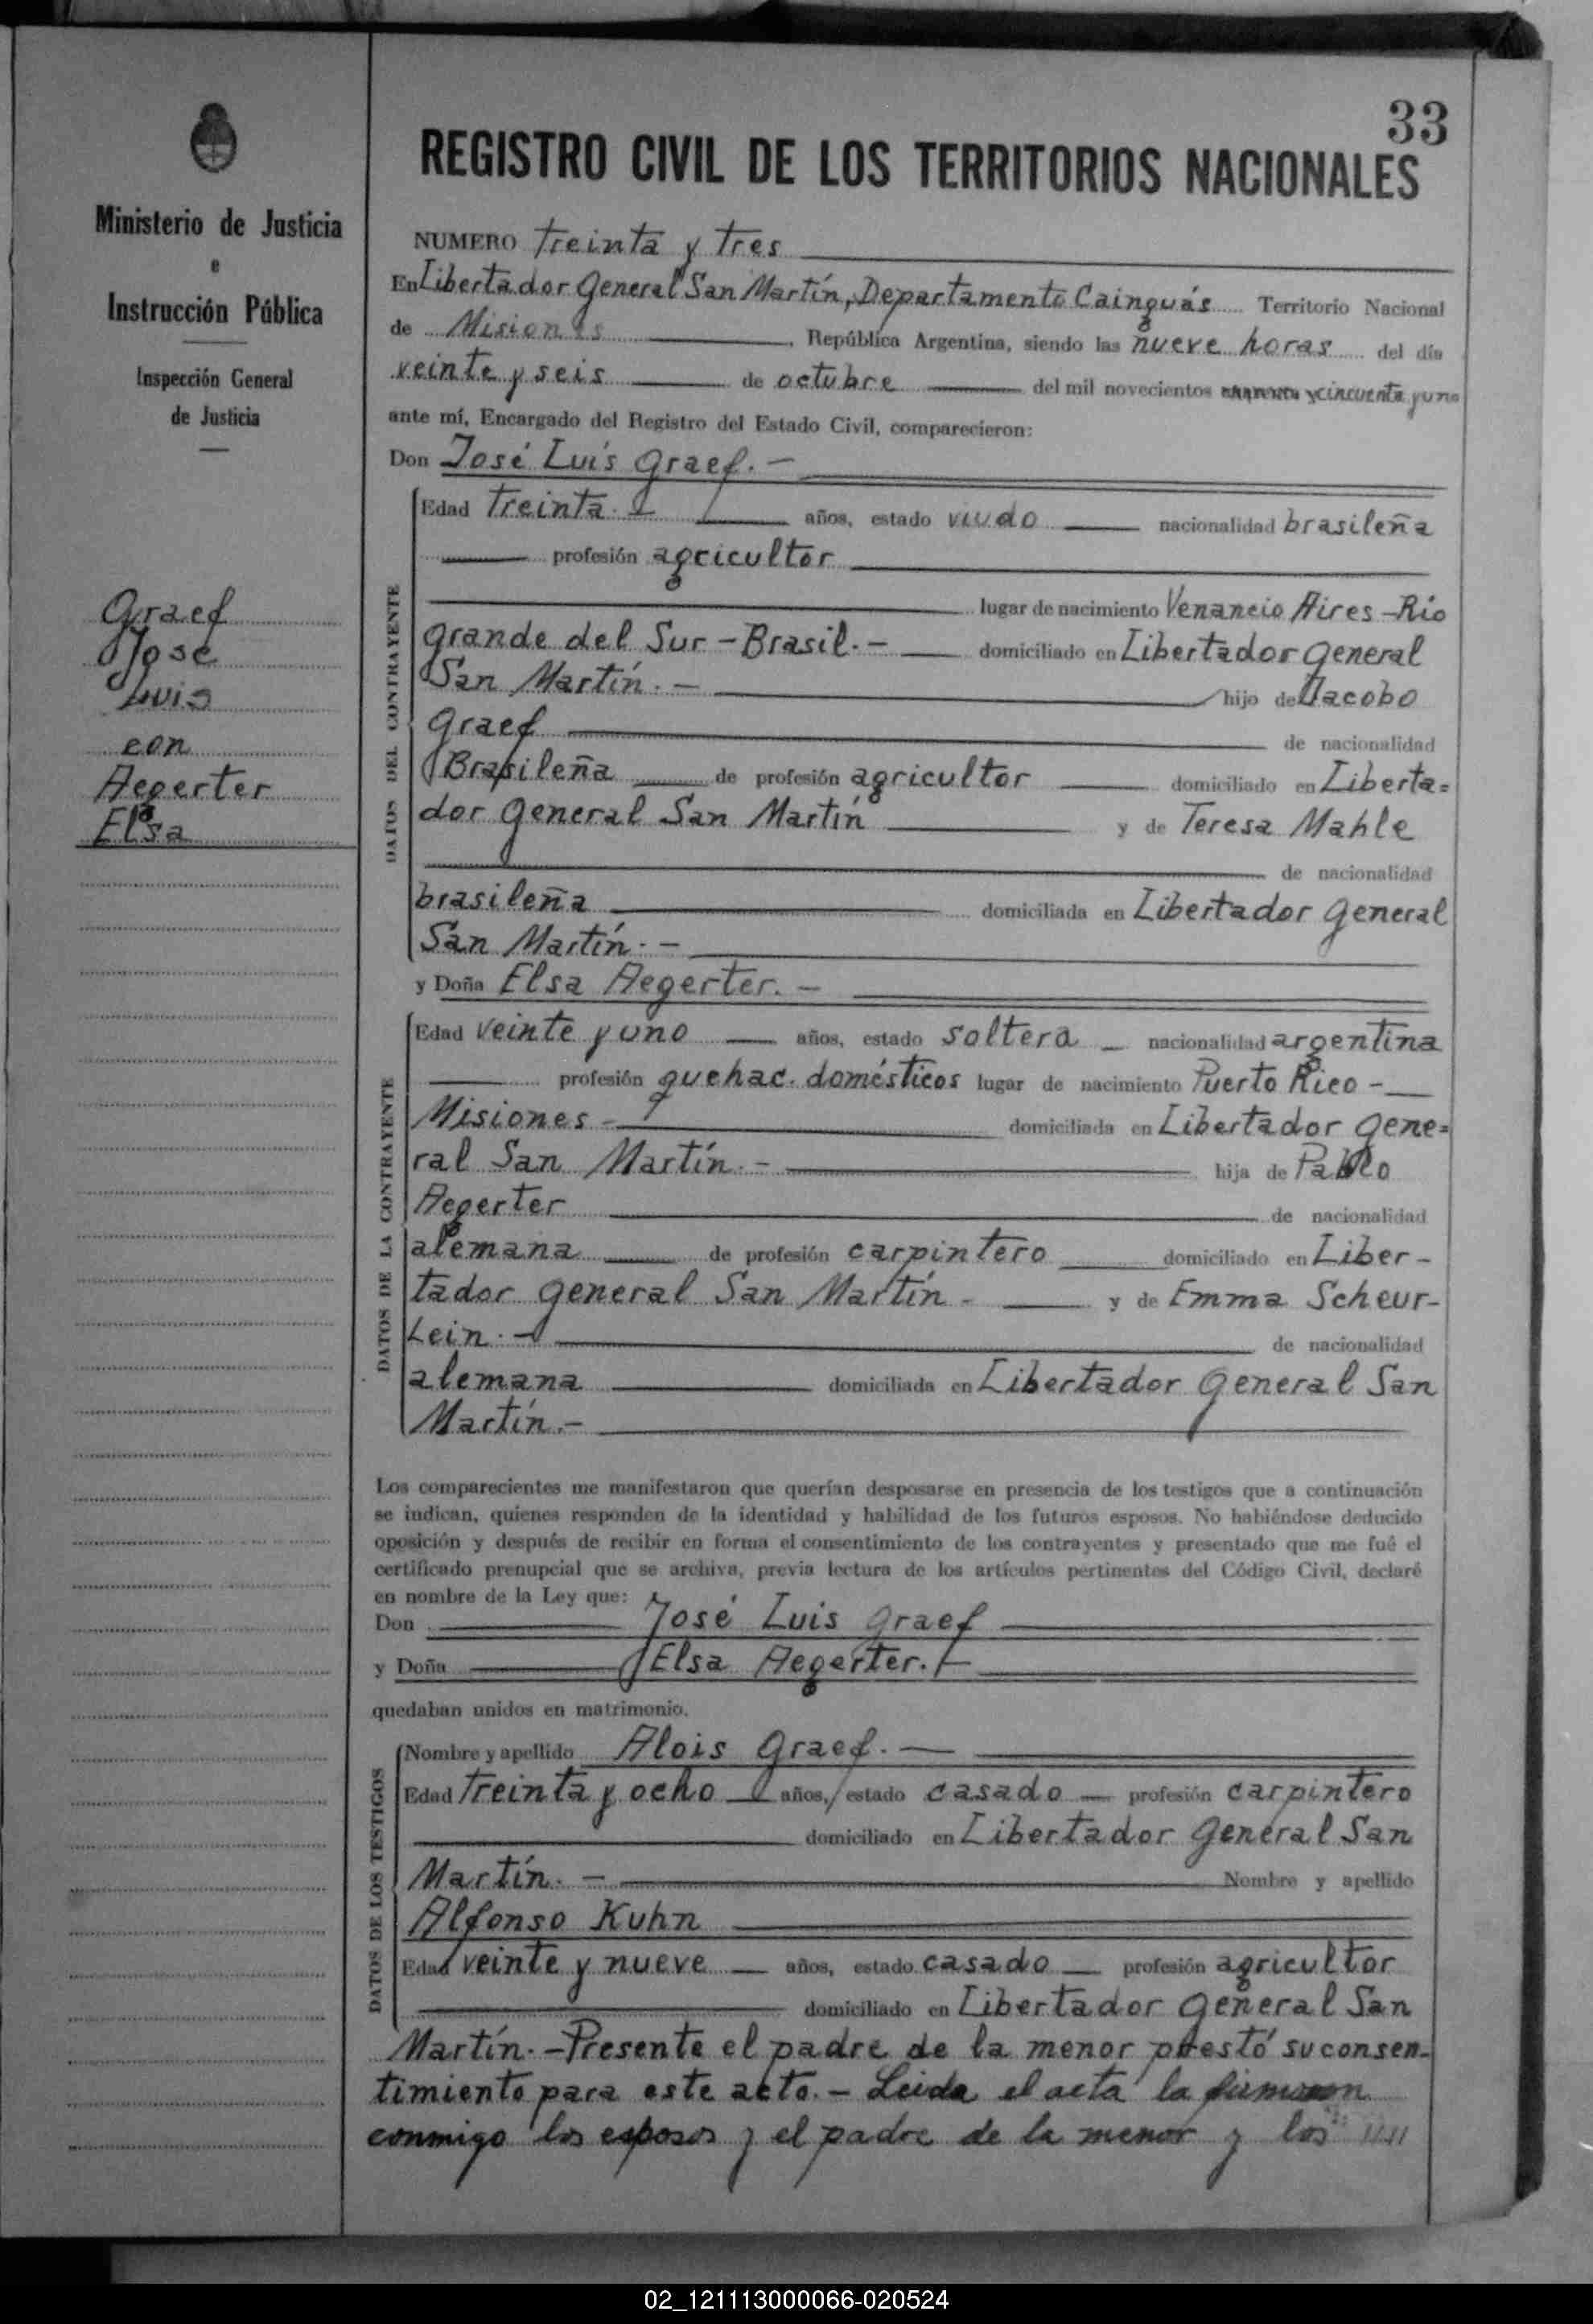 33
REGISTRO CIVIL DE LOS TERRITORIOS NACIONALES
Ministerio de Justicia
e
Instrucción Pública
Inspección General
de Justicia
Graef
José
Luis
con
Aegerter
Elsa
NUMERO treinta y tres
En Libertador General San Martín, Departamento Cainguás Territorio Nacional
de Misiones, República Argentina, siendo las nueve horas del día
veinte y seis de octubre del mil novecientos y cincuenta y uno
ante mí, Encargado del Registro del Estado Civil, comparecieron:
Don José Luís Graef. -
DATOS DEL CONTRAYENTE
Edad treinta años, estado viudo nacionalidad brasileña
profesión agricultor
lugar de nacimiento Venancio Aires - Río
grande del Sur - Brasil. - domiciliado en Libertador General
San Martín. - hijo de Jacobo
Graef de nacionalidad
Brasileña de profesión agricultor domiciliado en Liberta=
dor General San Martín y de Teresa Mahle
de nacionalidad
brasileña domiciliada en Libertador General
San Martín. -
y Doña Elsa Aegerter. -
DATOS DE LA CONTRAYENTE
Edad veinte y uno años, estado soltera nacionalidad argentina
profesión quehac. domésticos lugar de nacimiento Puerto Rico -
Misiones - domiciliada en Libertador Gene=
ral San Martín. - hija de Pablo
Aegerter de nacionalidad
alemana de profesión carpintero domiciliado en Liber-
tador General San Martín - y de Emma Scheur-
Lein. - de nacionalidad
alemana domiciliada en Libertador General San
Martín. -
Los comparecientes me manifestaron que querían desposarse en presencia de los testigos que a continuación
se indican, quienes responden de la identidad y habilidad de los futuros esposos. No habiéndose deducido
oposición y después de recibir en forma el consentimiento de los contrayentes y presentado que me fué el
certificado prenupcial que se archiva, previa lectura de los artículos pertinentes del Código Civil, declaré
en nombre de la Ley que:
Don José Luis Graef
y Doña Elsa Aegerter. -
quedaban unidos en matrimonio.
DATOS DE LOS TESTIGOS
Nombre y apellido Alois Graef. -
Edad treinta y ocho años, estado casado profesión carpintero
domiciliado en Libertador General San
Martín. - Nombre y apellido
Alfonso Kuhn
Edad veinte y nueve años, estado casado profesión agricultor
domiciliado en Libertador General San
Martín. - Presente el padre de la menor prestó su consen-
timiento para este acto. - Leida el acta la firmaron
conmigo los esposos y el padre de la menor y los
02_121113000066-020524